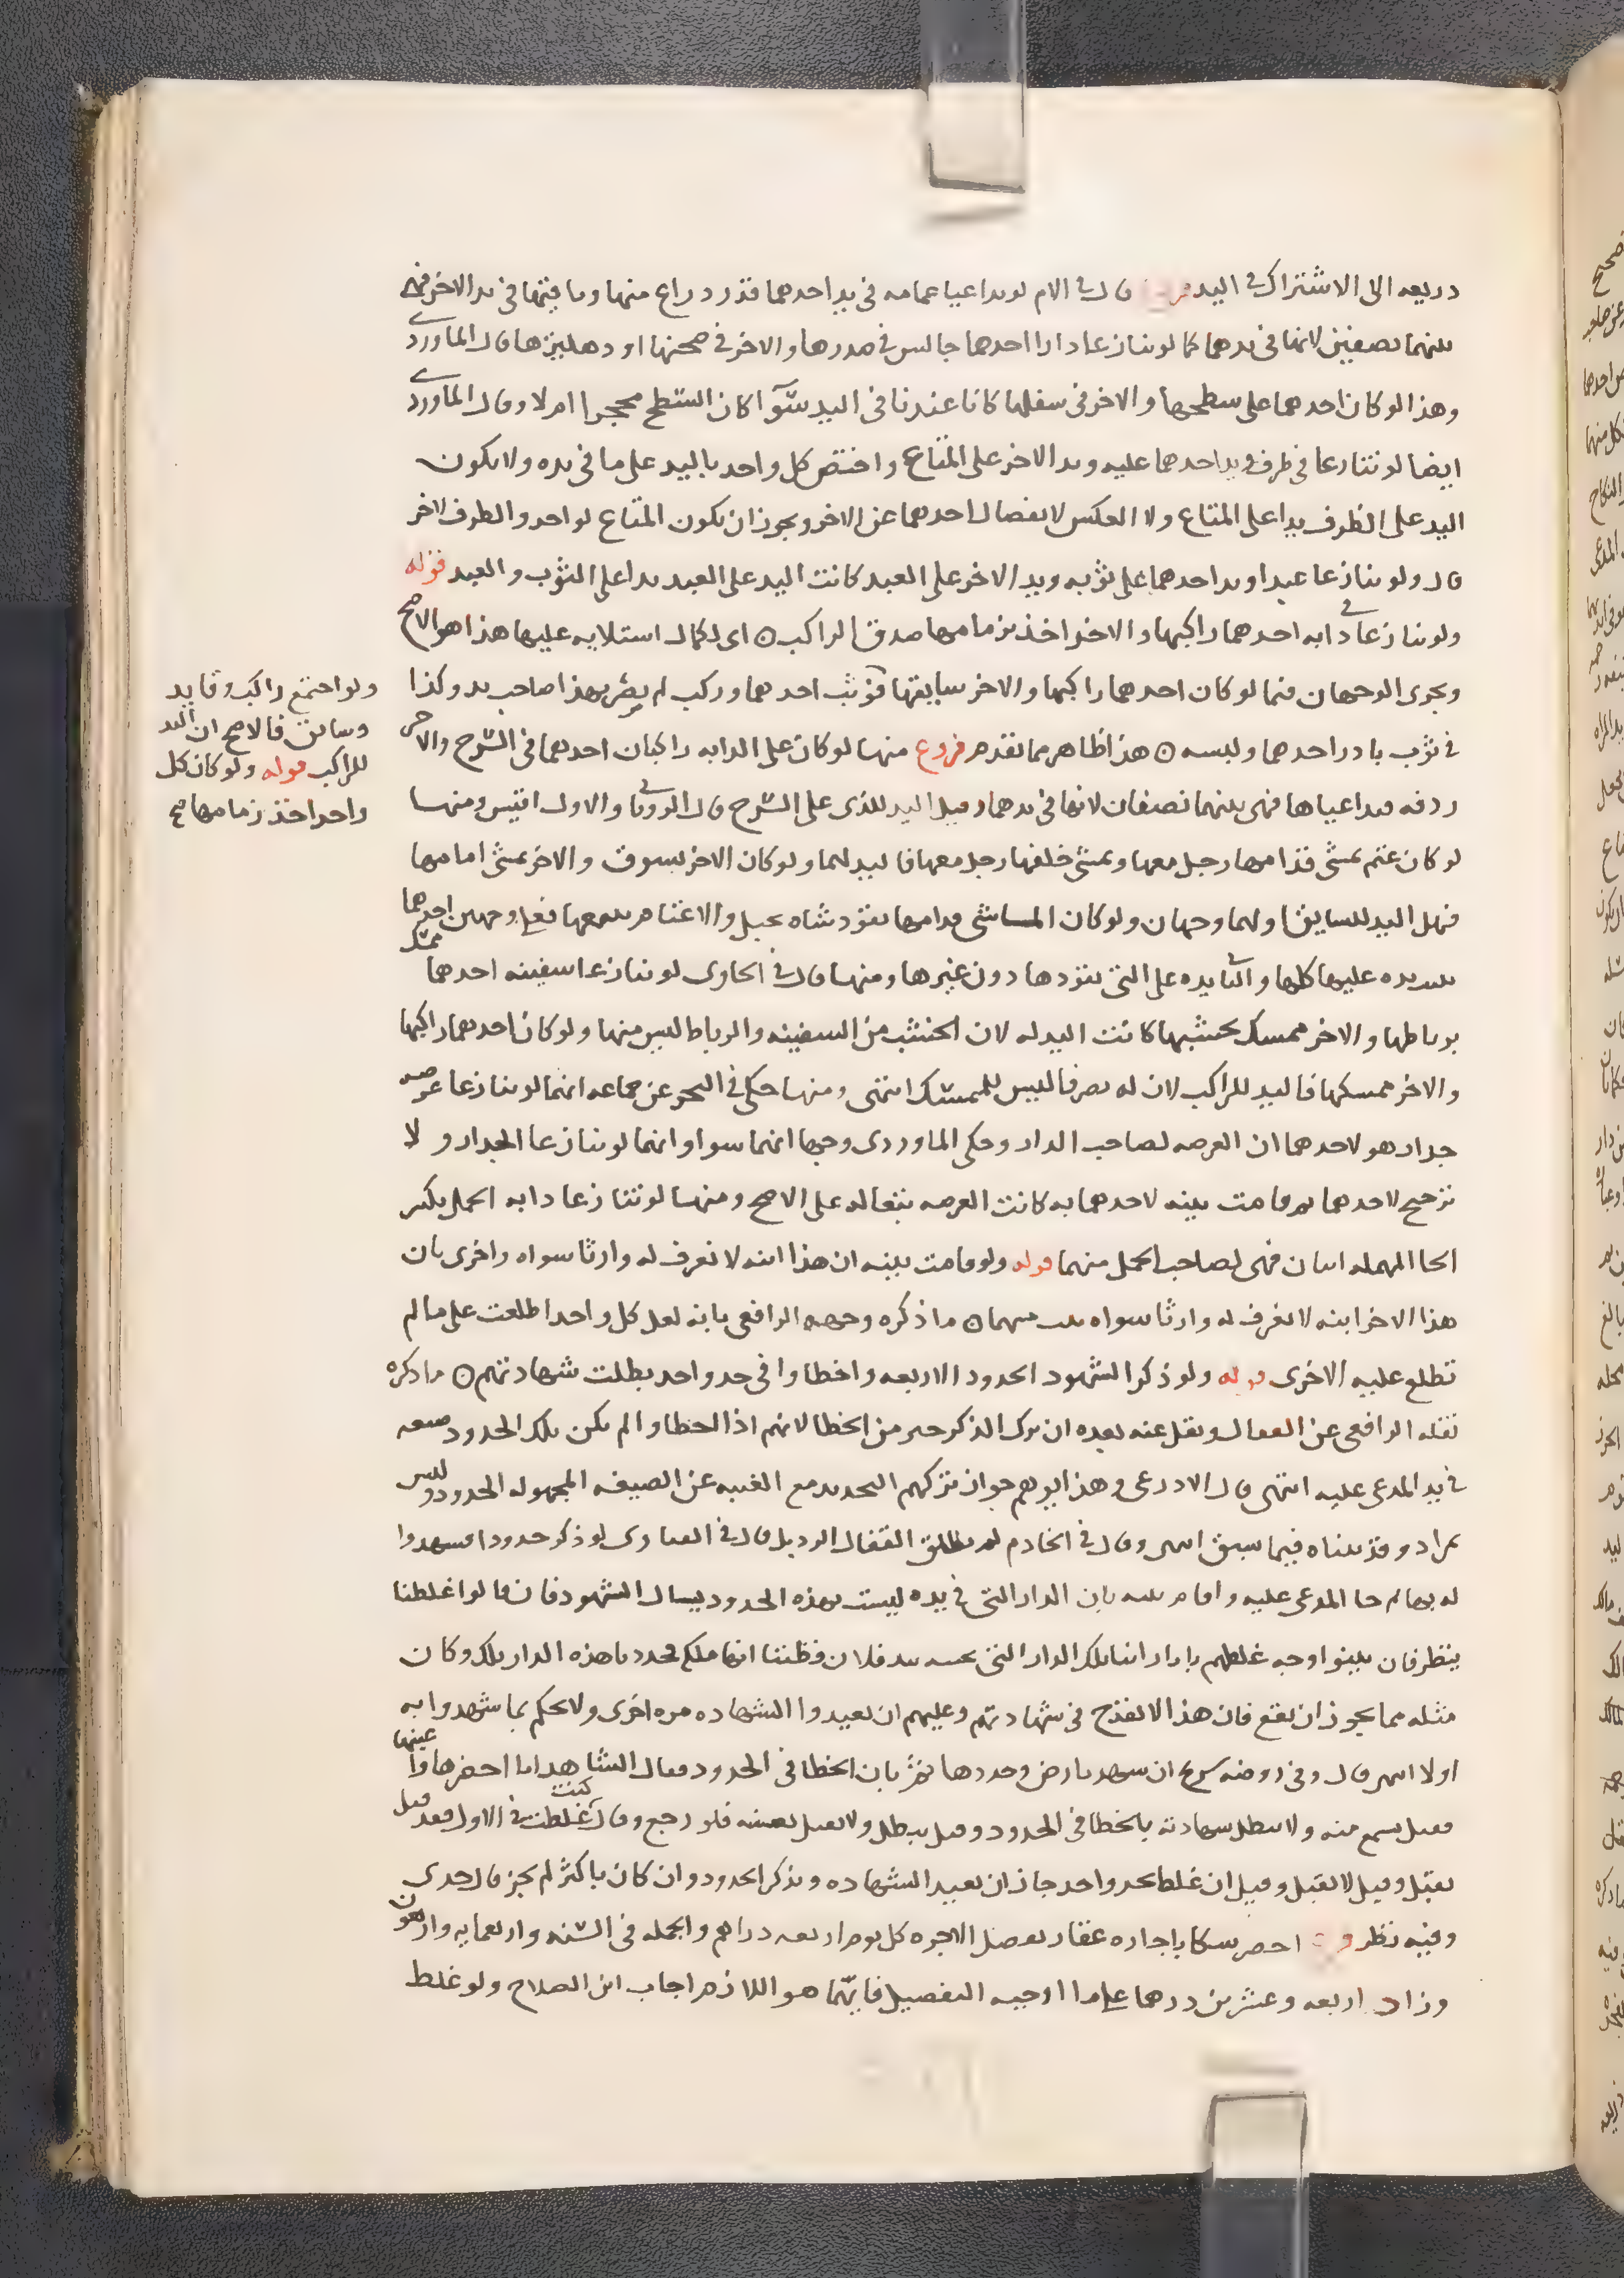 دريعه الى الاشتراك في اليد قال في الام لو تداعيا عمامه في يد احدهما قدر دراع منها وباقيها في يد الاخر فهي
بينهما نصفين لانها في يدهما كما لو تنازعا دارا احدهما جالس في صدرها والاخر في صحنها او دهليزها قال الماوردي
وهذا لو كان احدهما على سطحها والاخر في سفلها كانا عندنا في اليد سوآ كان السطح محجرا ام لا وقال الماوردي
ايضا لو تنازعا في ظرف ويد احدهما عليه ويد الاخر على المتاع واختص كل واحد باليد على ما في يده ولا يكون
اليد على الظرف يدا على المتاع ولا العكس لانفصال احدهما عن الاخر ويجوز ان يكون المتاع لواحد والظرف لاخر
قال ولو تنازعا عبدا ويد احدهما على ثوبه ويد الاخر على العبد كانت اليد على العبد يدا على الثوب والعبد قوله
ولو تنازعا في دابه احدهما راكبها والاخر اخذ بزمامها صدق الراكب ن اي لكمال استلايه عليها هذا هو الاصح
ويجري الوجهان فيما لو كان احدهما راكبها والاخر سايقها فوثب احدهما وركب لم يصر بهذا صاحب يد وكذا
في ثوب بادر احدهما ولبسه ن هذا ظاهر مما تقدم فروع منها لو كان على الدابه راكبان احدهما في السرج والاخر
ردفه فتداعياها فهي بينهما نصفان لانها في يدهما وقيل اليد للذي على السرج قال الروياني والاول اقيس ومنها
لو كان غنم يمشي قدامها رجل معها ويمشي خلفها رجل معها فاليد لهما ولو كان الاخر يسوق والاخر يمشي امامها
فهل اليد للسايق او لهما وجهان ولو كان الماشي قدامها يقود شاه بحبل والاغنام تتبعها فعلى وجهين احدهما
يده عليها كلها والثاني يده على التي يقودها دون غيرها ومنها قال في الحاوي لو تنازعا سفينه احدهما ممسك
برباطها والاخر ممسك بخشبها كانت اليد له لان الخشب من السفينه والرباط ليس منها ولو كان احدهما راكبها
والاخر ممسكها فاليد للراكب لان له تصرفا ليس للممسك انتهى ومنها حكى في البحر عن جماعه انهما لو تنازعا عرصه
جدار هو لاحدهما ان العرصه لصاحب الدار وحكى الماوردي وجها انهما سوا وانهما لو تنازعا الجدار ولا
ترجيح لاحدهما ثم قامت بينه لاحدهما به كانت العرصه تبعا له على الاصح ومنها لو تنازعا دابه الحمل بكسر
الحا المهمله اثنان فهي لصاحب الحمل منهما قوله ولو قامت بينه ان هذا ابنه لا نعرف له وارثا سواه واخرى بان
هذا الاخر ابنه لا نعرف له وارثا سواه ثبت نسبهما ن ما ذكره وجهه الرافعي بانه لعل كل واحد اطلعت على ما لم
تطلع عليه الاخرى قوله ولو ذكر الشهود الحدود الاربعه واخطاوا في حد واحد بطلت شهادتهم ن ما ذكره
نقله الرافعي عن القفال ونقل عنه بعده ان ترك الذكر خير من الخطا لانهم اذا اخطاوا لم يكن بتلك الحدود ضيعه
في يد المدعى عليه انتهى قال الاذرعي وهذا يوهم جواز تركهم التحديد مع الغيبه عن الضيعه المجهوله الحدود وليس
بمراد وقد بيناه فيما سبق انتهى وقال في الخادم لم يطلق القفال الرد بل قال في الفتاوى لو ذكر حدودا فشهدوا
له بها ثم جا المدعى عليه واقام بينه بان الدار التي في يده ليست بهذه الحدود يسال الشهود فان قالوا غلطنا
ينظر فان بينوا وجه غلطهم بان راينا تلك الدار التي بيد فلان وظننا انها ملكه فحددنا هذه الدار بتلك وكان
مثله مما يجوز ان يقع فان هذا لا يقدح في شهادتهم وعليهم ان يعيدوا الشهاده مره اخرى ولا يحكم بما شهدوا به
اولا انتهى قال وفي روضه شريح ان شهد بارض وحددها ثم بان الخطا في الحدود فقال الشاهد انا احضرها واعينها
فقيل يسمع منه ولا تبطل شهادته بالخطا في الحدود وقيل يبطل ولا يقبل تعيينه فلو رجع وقال كنت غلطت في الاول فقد قيل
يقبل وقيل لا يقبل وقيل ان غلط بحد واحد جاز ان يعيد الشهاده ويذكر الحدود وان كان باكثر لم يجز قال جدي
وفيه نظر احضر باجاره عقار تفصيل الاجره كل يوم اربعه دراهم والجمله في السنه واربعمايه واربعون
وزاد اربعه وعشرين درهما على ما اوجبه التفصيل فايهما هو اللازم اجاب ابن الصلاح ولو غلط
ولو اجتمع راكب وقايد
وسايق فالاصح ان اليد
للراكب قوله ولو كان كل
واحد اخذ زمامها صح